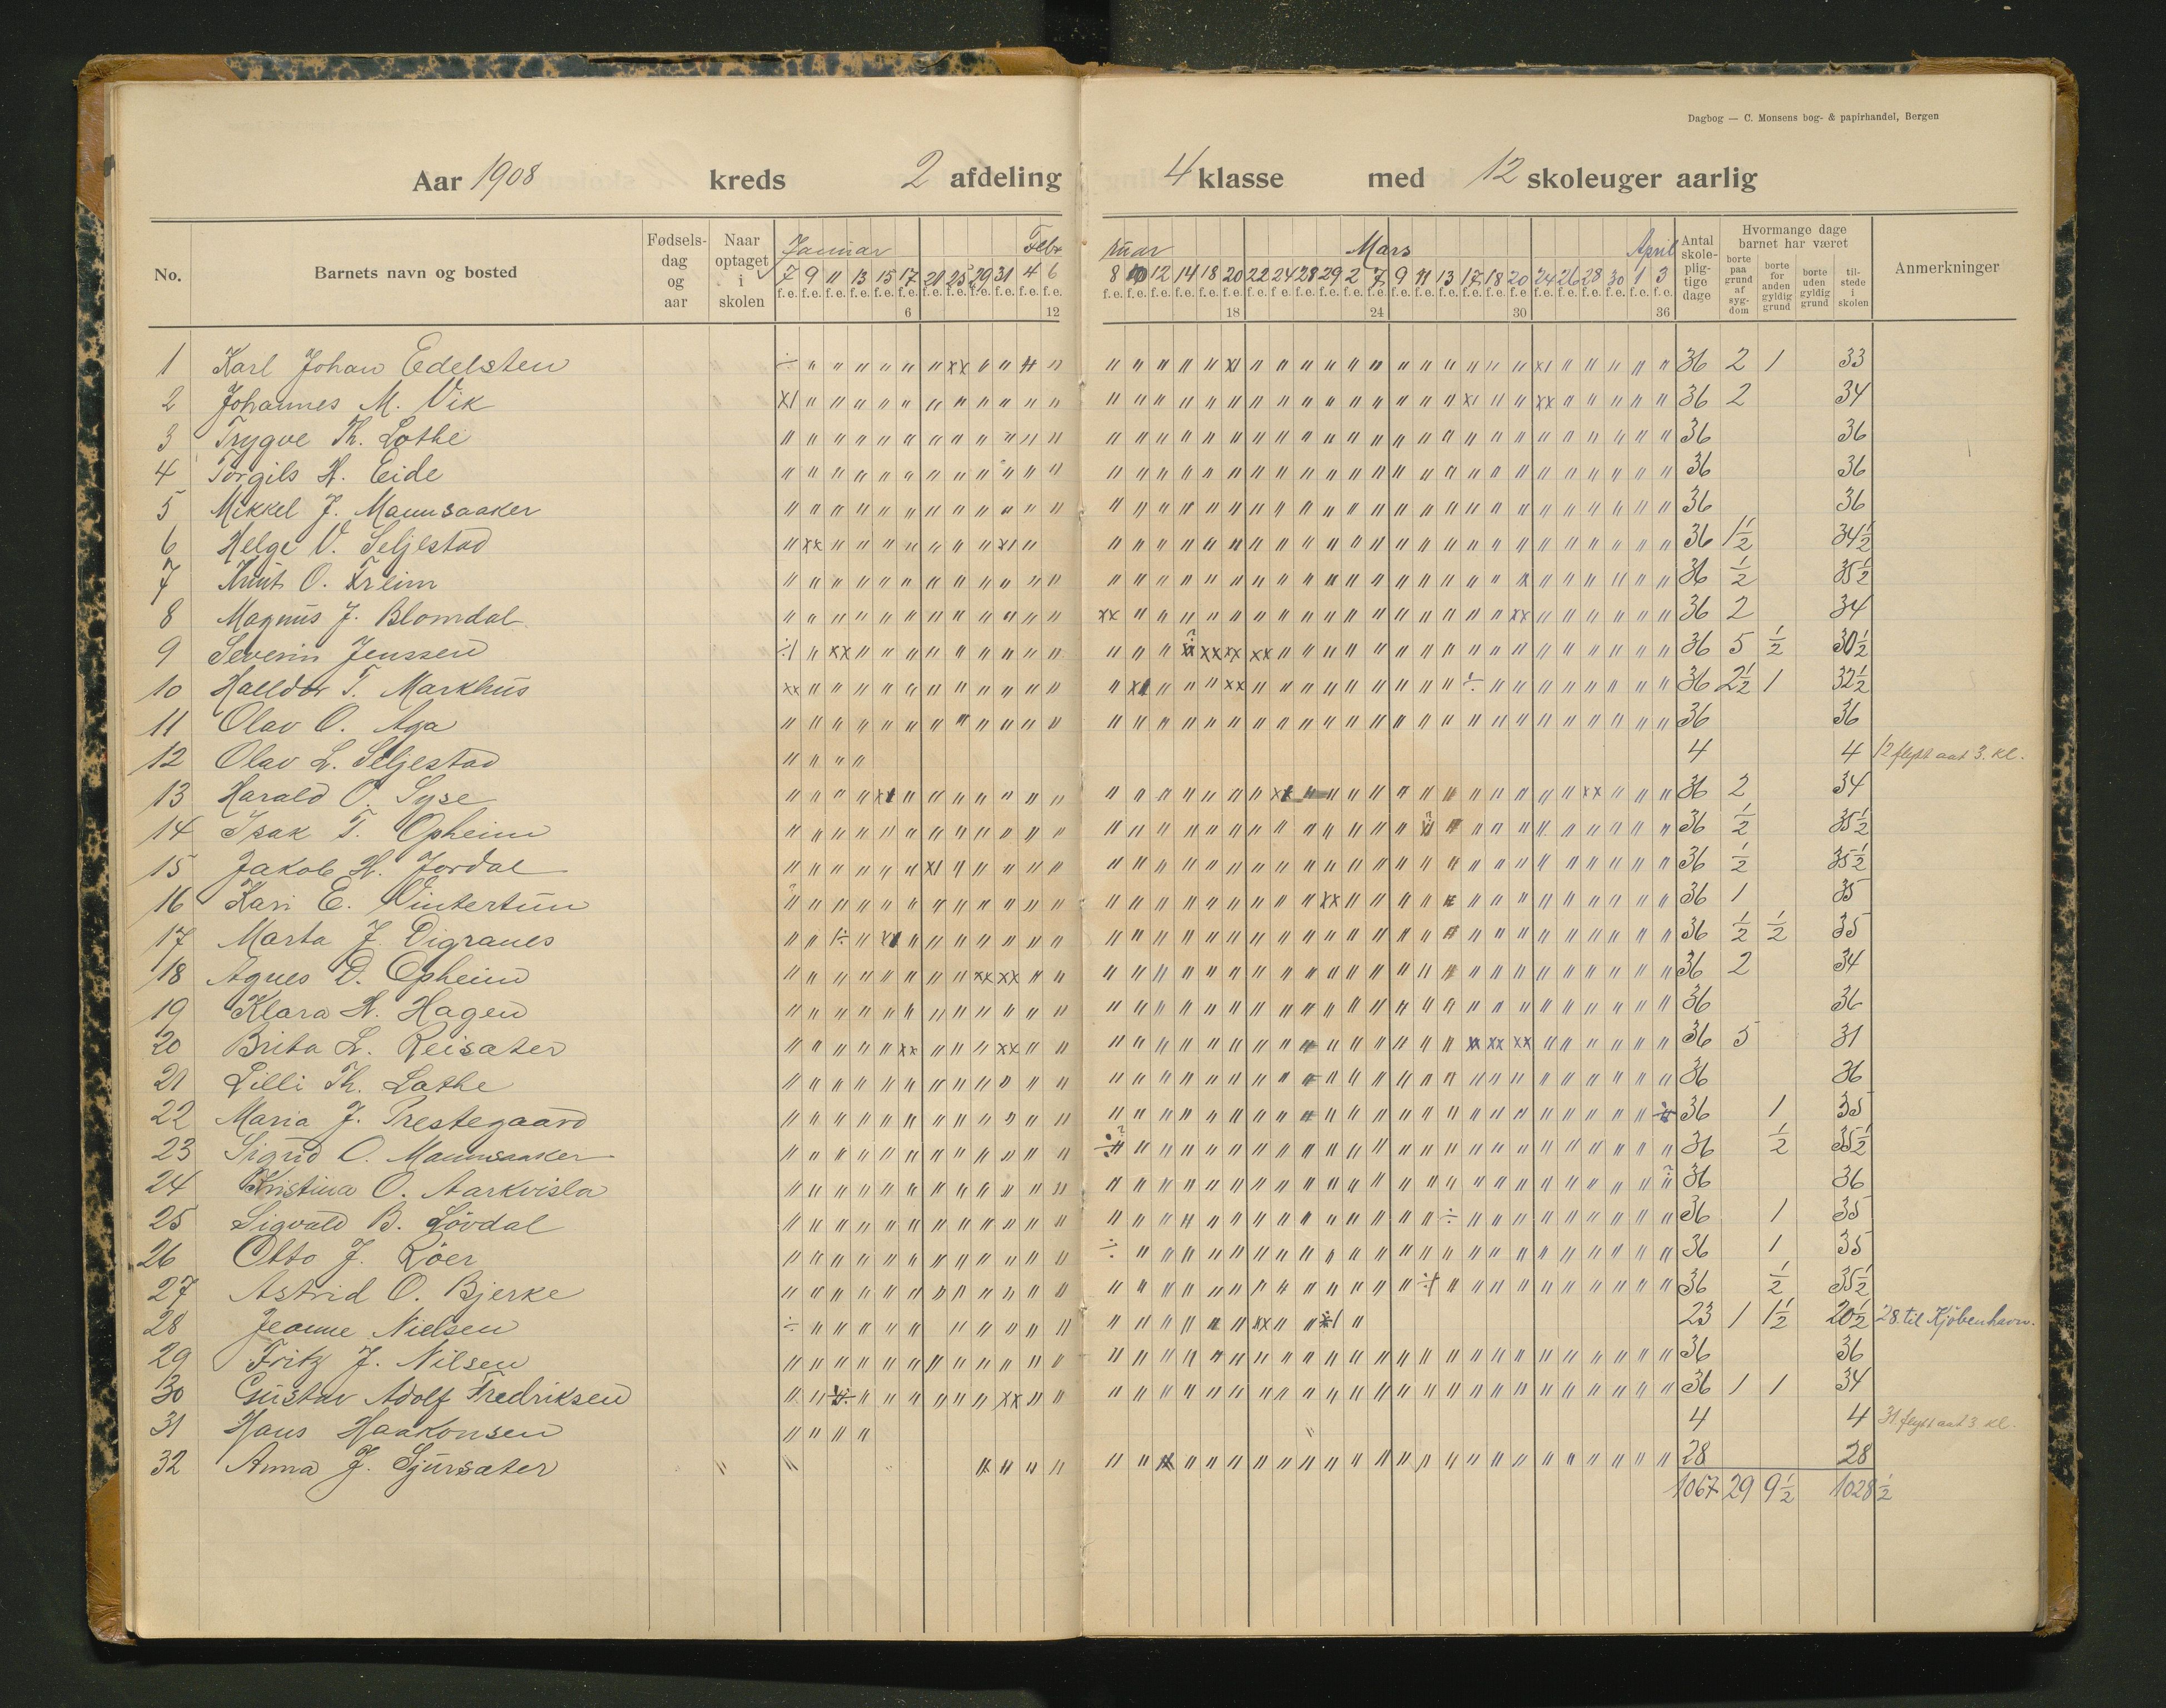 Dagbog — C. Monsens bog- & papirhandel, Bergen
Aar 1908 kreds 2 afdeling 4 klasse med 12 skoleuger aarlig
No. Barnets navn og bosted Fødsels-dag og aar Naar optaget i skolen Januar Febr ruar Mars April Antal skole-plig-tige dage Hvormange dage barnet har været Anmerkninger
borte paa grund af syg-dom borte for anden gyldig grund borte uden gyldig grund til-stede i skolen
7 9 11 13 15 17 21 25 29 31 4 6 8 10 12 14 18 20 22 24 28 29 2 7 9 11 13 17 18 20 24 26 28 30 1 3
f.e. f.e. f.e. f.e. f.e. f.e. f.e. f.e. f.e. f.e. f.e. f.e. f.e. f.e. f.e. f.e. f.e. f.e. f.e. f.e. f.e. f.e. f.e. f.e. f.e. f.e. f.e. f.e. f.e. f.e. f.e. f.e. f.e. f.e. f.e. f.e.
6 12 18 24 30 36
1 Karl Johan Edelsten 36 2 1 33
2 Johannes M. Vik 36 2 34
3 Trygve Th. Lothe 36 36
4 Torgils H. Eide 36 36
5 Mikkel J. Mannsaaker 36 36
6 Helge V. Seljestad 36 1½ 34½
7 Knut O. Freim 36 ½ 35½
8 Magnus J. Blomdal 36 2 34
9 Severin Jenssen 36 5 ½ 30½
10 Halldor T. Markhus 36 2½ 1 32½
11 Olav O. Aga 36 36
12 Olav L. Seljestad 4 4 12 flyt aat 3. kl.
13 Harald O. Syse 36 2 34
14 Isak T. Opheim 36 ½ 35½
15 Jakob H. Jordal 36 ½ 35½
16 Kari E. Vintertun 36 1 35
17 Marta J. Digranes 36 ½ ½ 35
18 Agnes D. Opheim 36 2 34
19 Klara N. Hagen 36 36
20 Brita L. Reisæter 36 5 31
21 Lilli Th. Lothe 36 36
22 Maria J. Prestegaard 36 1 35
23 Sigrid O. Mannsaaker 36 ½ 35½
24 Kristina O. Aarkvisla 36 36
25 Sigvald B. Lövdal 36 1 35
26 Otto J. Röer 36 1 35
27 Astrid O. Bjerke 36 ½ 35½
28 Jeanne Nielsen 23 1 1½ 20½ 28. til Kjöbenhavn.
29 Fritz J. Nilsen 36 36
30 Gustav Adolf Fredriksen 36 1 1 34
31 Hans Haakonsen 4 4 31 flyt aat 3 kl.
32 Anna J. Sjursæter 28 28
1067 29 9½ 1028½